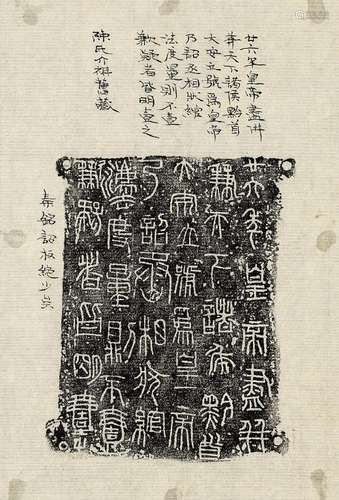 廿六年皇帝盡并
兼天下諸侯黔首
大安立號為皇帝
乃詔丞相狀綰
法度量則不壹
歉疑者皆明壹之
陳氏介祺舊藏
廿六年皇帝盡并
兼天下諸侯黔首
大安立號為皇帝
乃詔丞相狀綰
灋度量則不壹
歉疑者皆明壹之
秦銘詔板絕少矣